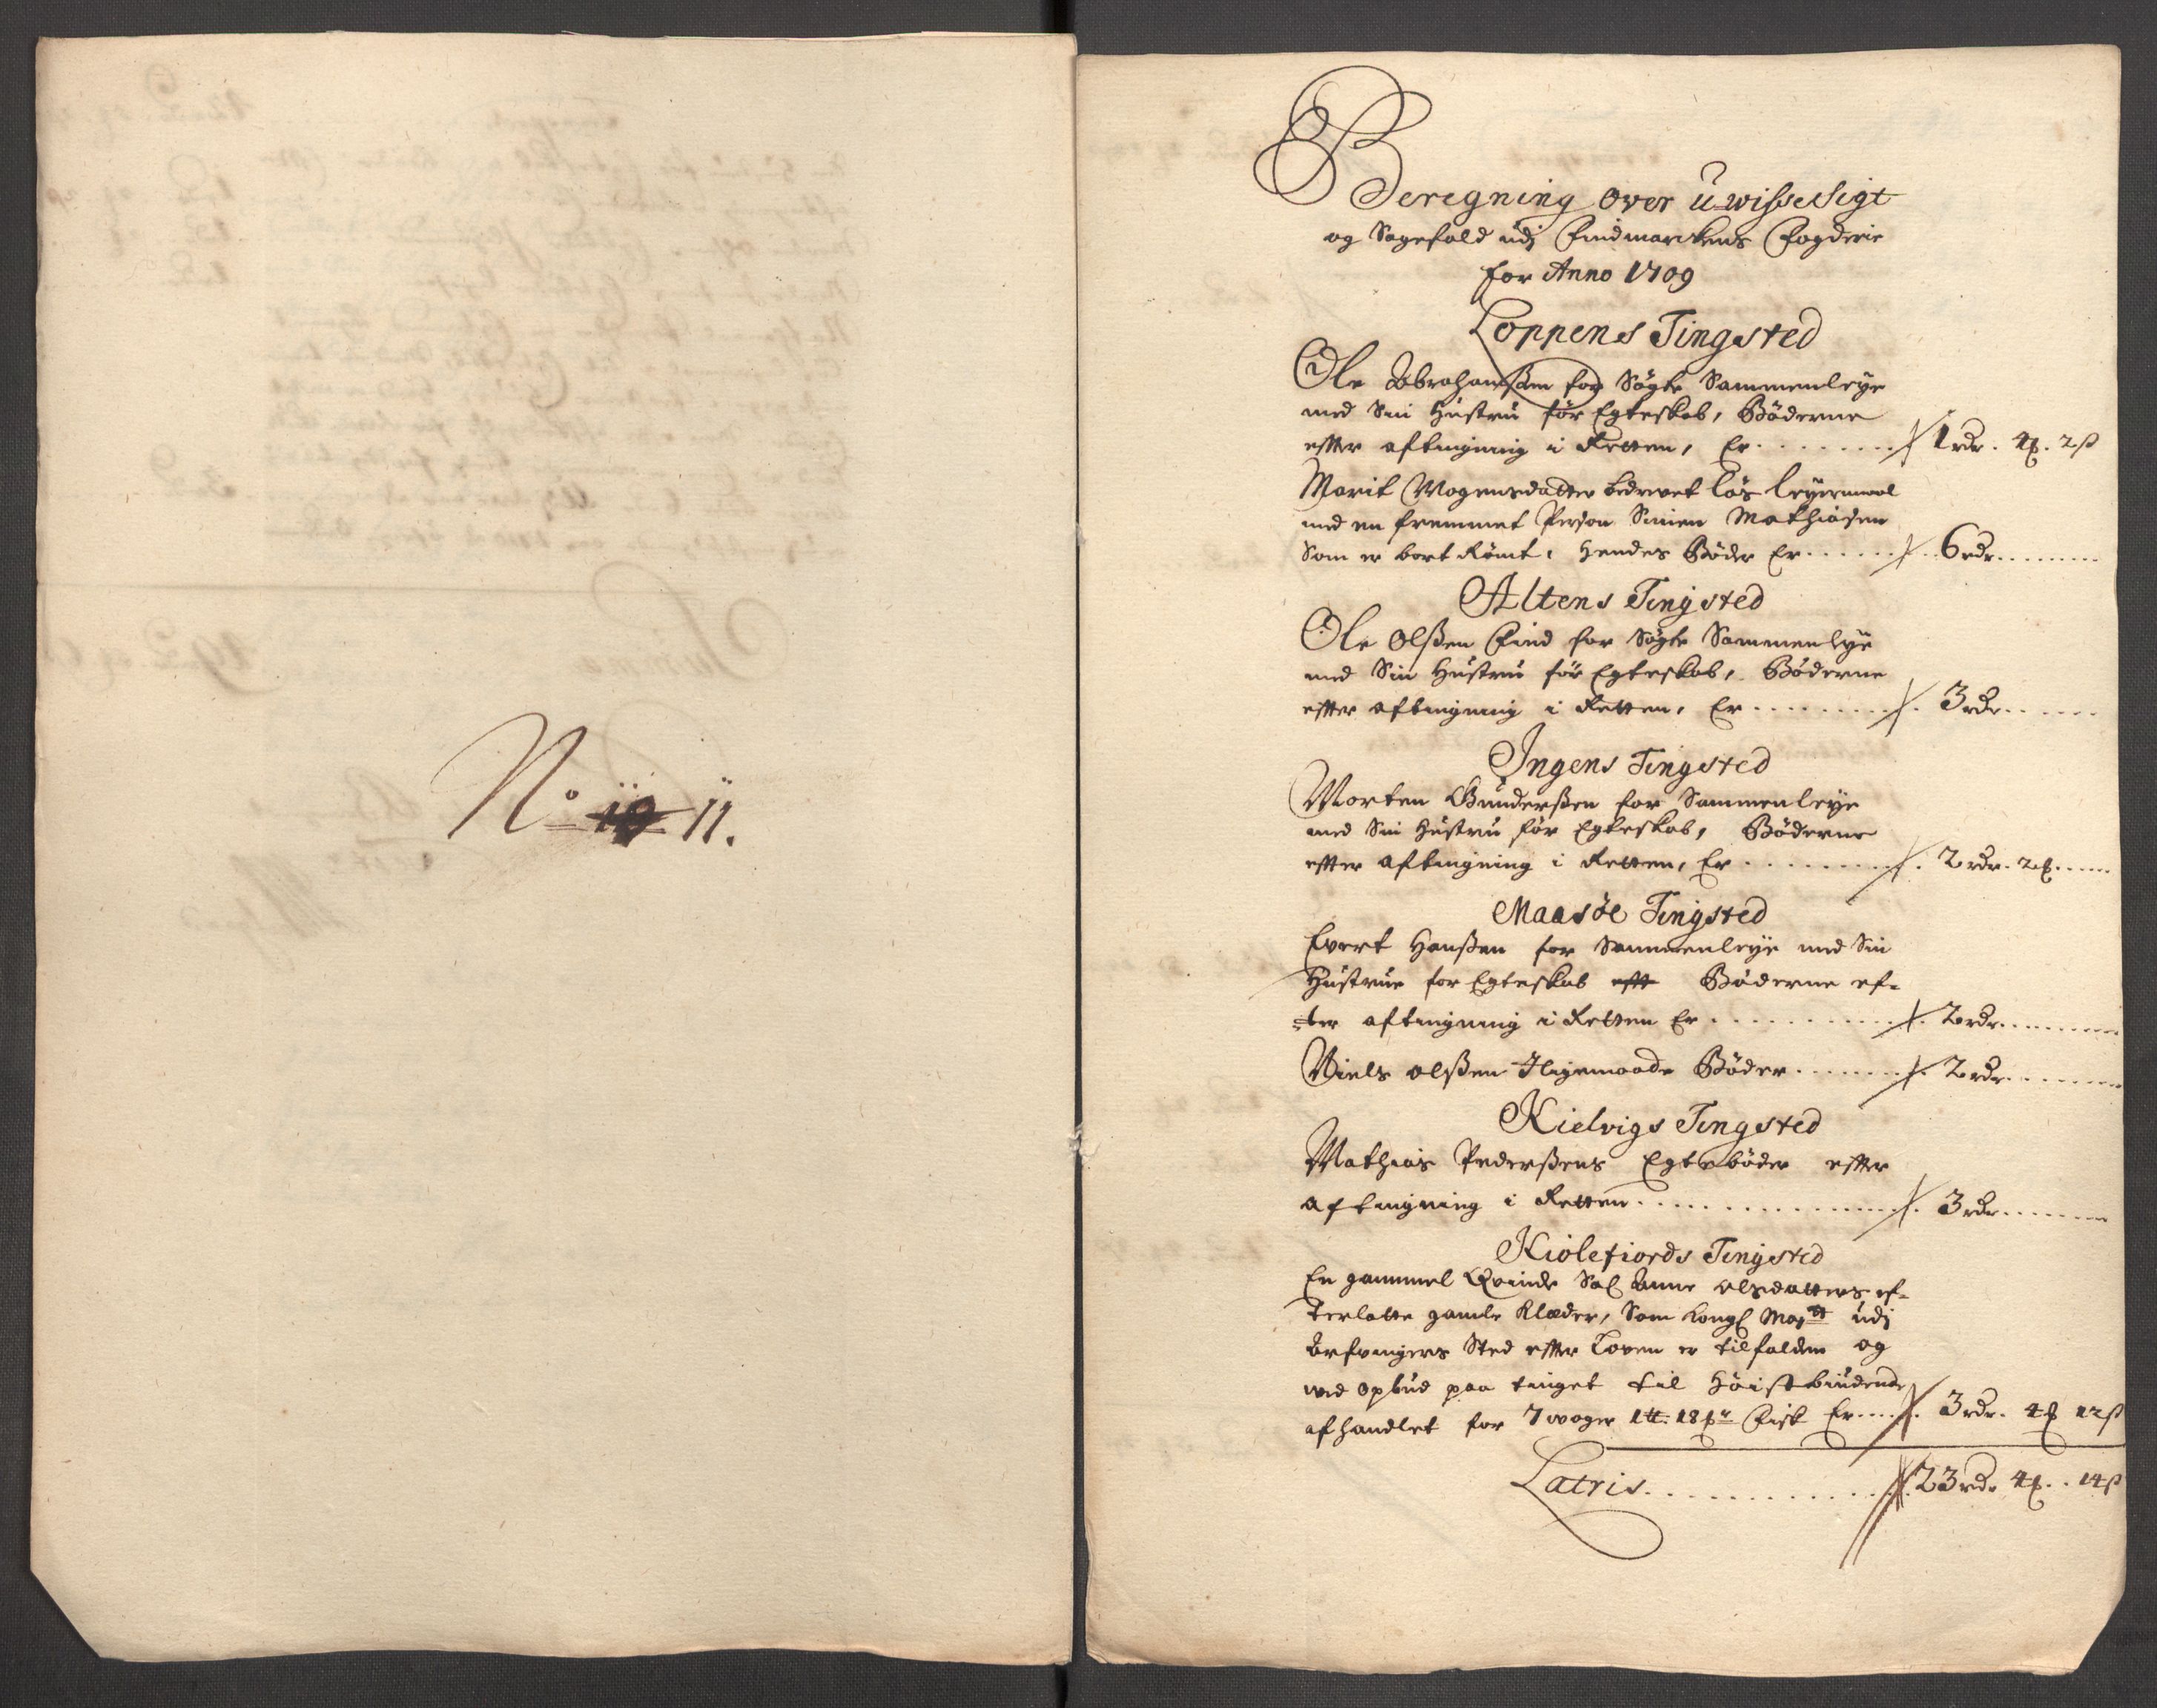 No 10 11.
Beregning over uwisse Sigt
og Sagefald udj Findmarckens Fogderie
for Anno 1709
Loppens Tingsted
Ole Abrahamßen for Søgte Sammenleye
med Sin Hustru før Egteskab, Bøderne
effter aftingning i Retten, Er 1 rdr. 4 . 2 ß
Marit Mogensdatter bedrevet løs leyermaal
med en fremmet Person Simen Mathiasen
Som er bort Rømt, Hendes Bøder Er 6 rdr.
Altens Tingsted
Ole Olßen Find for Søgte Sammenleye
med Sin Hustru før Egteskab, Bøderne
effter aftingning i Retten, Er 3 rdr.
Ingens Tingsted
Morten Gunderßen for Sammenleye
med Sin Hustru før Egteskab, Bøderne
effter aftingning i Retten, Er 2 rdr. 2 .
Maasøe Tingsted
Evert Hanßen for Sammenleye med Sin
Hustrue for Egteskab efft Bøderne ef-
ter aftingning i Retten Er 2 rdr.
Niels Olßen Iligemaade Bøder 2 rdr.
Kielvigs Tingsted
Mathias Pederßens Egtebøder effter
aftingning i Retten 3 rdr.
Kiølefiords Tingsted
En gammel Qvinde Sal Anne Olsdatters ef-
terlatte gamle Klæder, Som Kongl Maytt udj
Arfvingers Sted effter Loven er tilfalden og
ved Opbud paa tinget til Høistbiudende
afhandlet for 7 woger 1 18 Fisk Er 3 rdr. 4 12 ß
Latris 23 rdr 4 . 14 ß